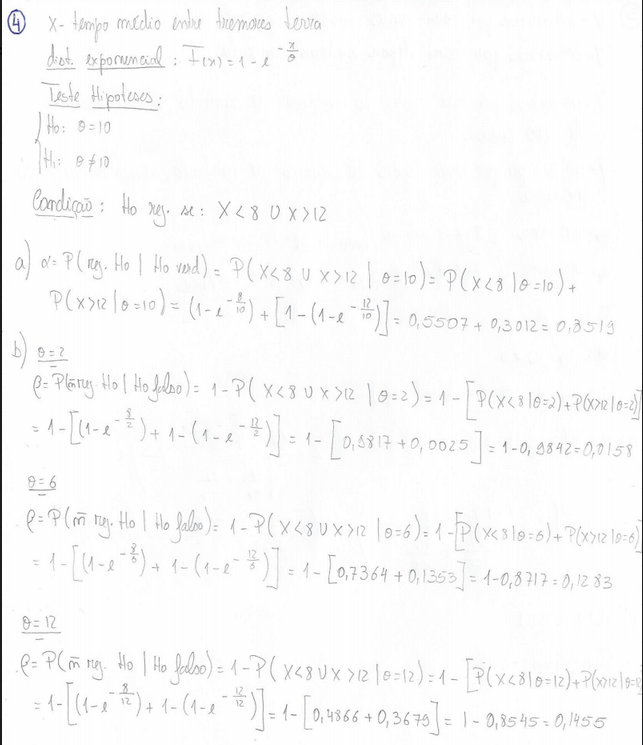 ④ X - tempo médio entre tremores terra
dist. exponencial : F(x) = 1 - e^{-x/θ}
Teste Hipoteses:
H0: θ=10
H1: θ≠10
Condição : Ho rej. se: X<8 ∪ X>12
a) α= P(rej. Ho | Ho verd) = P(X<8 ∪ X>12 | θ=10) = P(X<8 | θ=10) +
P(X>12 | θ=10) = (1-e^{-8/10}) + [1-(1-e^{-12/10})] = 0,5507 + 0,3012 = 0,8519
b) θ=2
β= P(ñ rej. Ho | Ho falso) = 1-P(X<8 ∪ X>12 | θ=2) = 1 - [P(X<8 | θ=2) + P(X>12 | θ=2)]
= 1-[(1-e^{-8/2}) + 1-(1-e^{-12/2})] = 1- [0,9817 + 0,0025] = 1-0,9842 = 0,0158
θ=6
β= P(ñ rej. Ho | Ho falso) = 1-P(X<8 ∪ X>12 | θ=6) = 1-[P(X<8 | θ=6) + P(X>12 | θ=6)]
= 1-[(1-e^{-8/6}) + 1-(1-e^{-12/6})] = 1- [0,7364 + 0,1353] = 1-0,8717 = 0,1283
θ=12
β= P(ñ rej. Ho | Ho falso) = 1-P(X<8 ∪ X>12 | θ=12) = 1- [P(X<8 | θ=12) + P(X>12 | θ=12
= 1-[(1-e^{-8/12}) + 1-(1-e^{-12/12})] = 1-[0,4866 + 0,3679] = 1 - 0,8545 = 0,1455